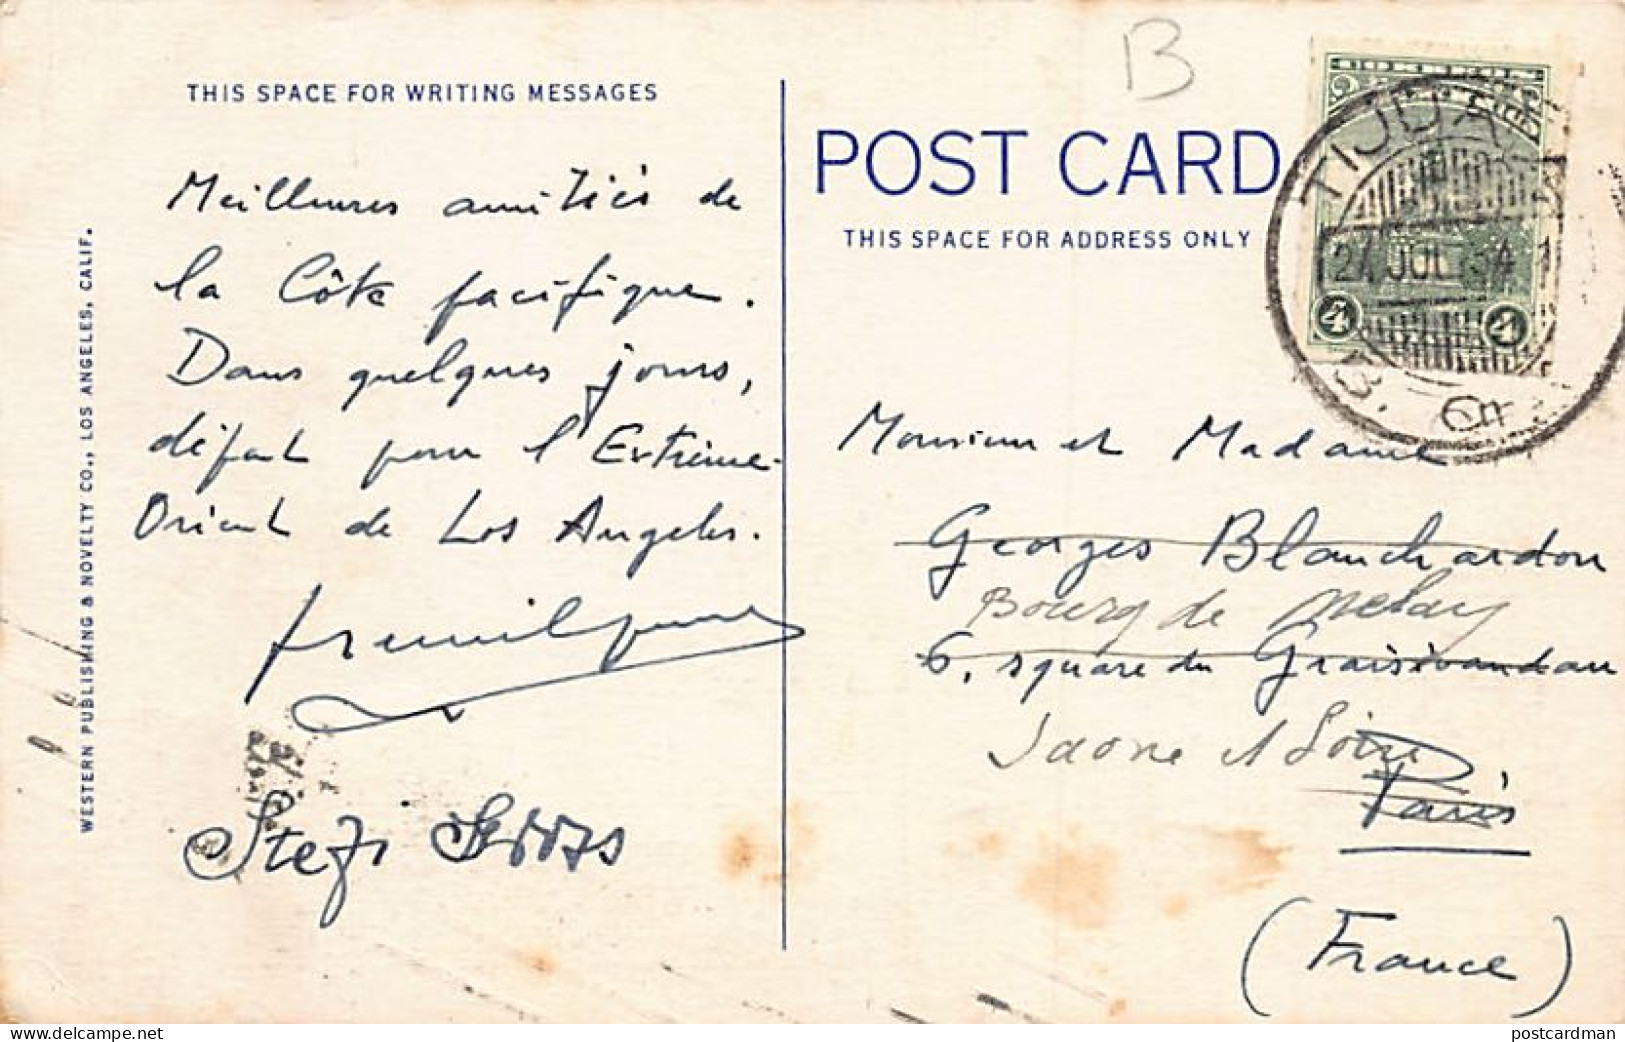 B
THIS SPACE FOR WRITING MESSAGES
POST CARD
THIS SPACE FOR ADDRESS ONLY
TIJUANA
24 JUL 34
B. Cfa
4 4
Meilleures amitiés de
la Côte pacifique.
Dans quelques jours,
départ pour l'Extrême-
Orient de Los Angeles.
Stefi
Monsieur et Madame
Georges Blanchardon
Bourg de
6, square du Graisivaudan
Saone et Loire
Paris
(France)
WESTERN PUBLISHING & NOVELTY CO., LOS ANGELES, CALIF.
delcampe.net
postcardman